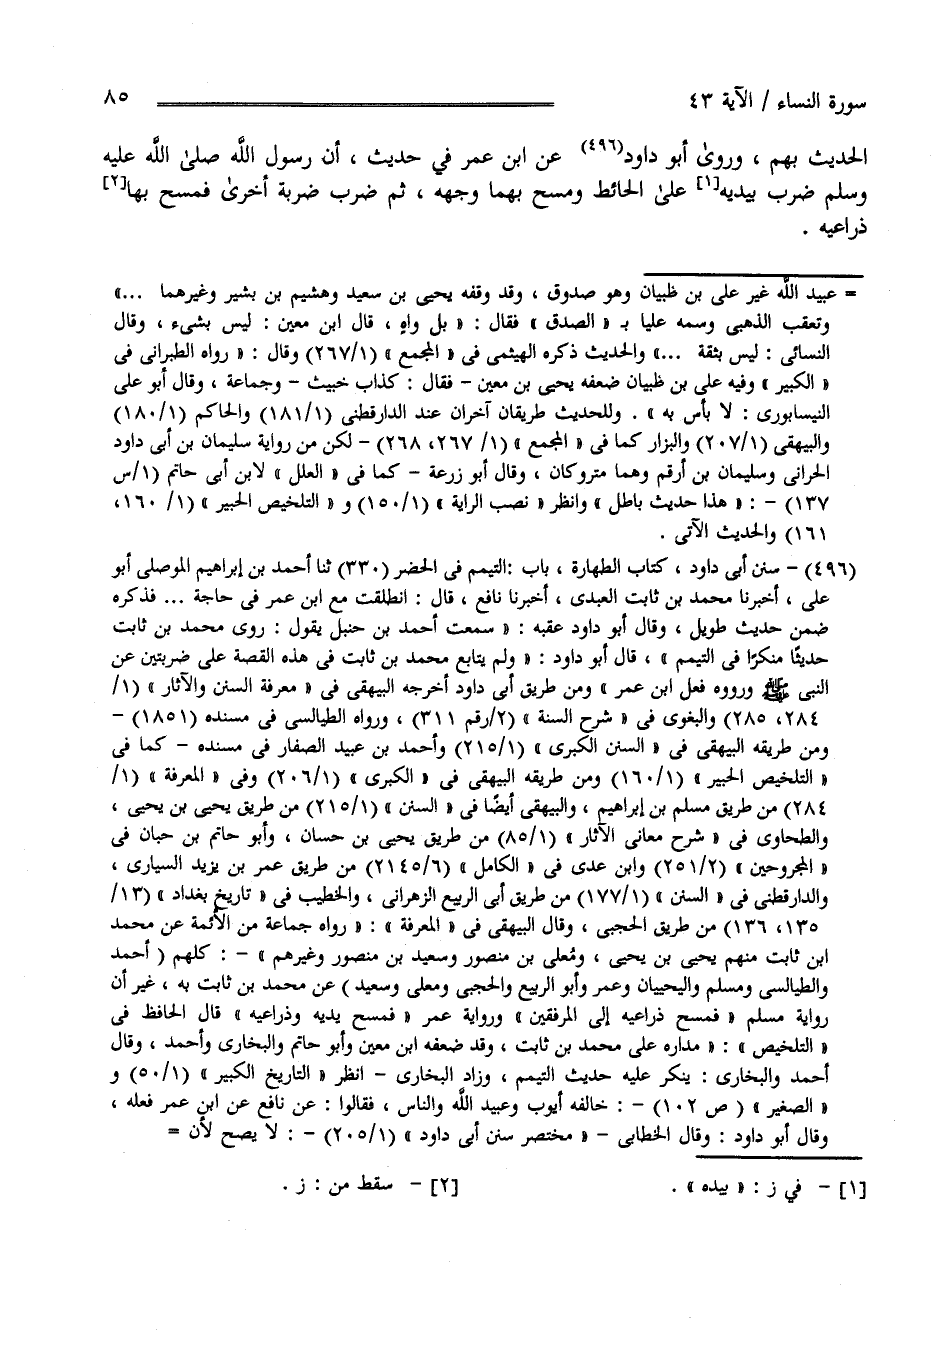 سورة النساء / الآية ٤٣ ٨٥
الحديث بهم ، وروىٰ أبو داود(٤٩٦) عن ابن عمر في حديث ، أن رسول اللَّه صلىٰ اللَّه عليه
وسلم ضرب بيديه[١] علىٰ الحائط ومسح بهما وجهه ، ثم ضرب ضربة أخرىٰ فمسح بها[٢]
ذراعيه .
= عبيد اللَّه غير على بن ظبيان وهو صدوق ، وقد وقفه يحيى بن سعيد وهشيم بن بشير وغيرهما ...»
وتعقب الذهبى وسمه عليا بـ « الصدق » فقال : « بل واهٍ ، قال ابن معين : ليس بشىء ، وقال
النسائى : ليس بثقة ...» والحديث ذكره الهيثمى فى « المجمع » (٢٦٧/١) وقال : « رواه الطبرانى فى
« الكبير » وفيه على بن ظبيان ضعفه يحيى بن معين – فقال : كذاب خبيث – وجماعة ، وقال أبو على
النيسابورى : لا بأس به » . وللحديث طريقان آخران عند الدارقطنى (١٨١/١) والحاكم (١٨٠/١)
والبيهقى (٢٠٧/١) والبزار كما فى « المجمع » (١/ ٢٦٧، ٢٦٨) – لكن من رواية سليمان بن أبى داود
الحرانى وسليمان بن أرقم وهما متروكان ، وقال أبو زرعة – كما فى « العلل » لابن أبى حاتم (١/س
١٣٧) – : « هذا حديث باطل » وانظر « نصب الراية » (١٥٠/١) و « التلخيص الحبير » (١/ ١٦٠،
١٦١) والحديث الآتى .
(٤٩٦) – سنن أبى داود ، كتاب الطهارة ، باب :التيمم فى الحضر (٣٣٠) ثنا أحمد بن إبراهيم الموصلى أبو
على ، أخبرنا محمد بن ثابت العبدى ، أخبرنا نافع ، قال : انطلقت مع ابن عمر فى حاجة ... فذكره
ضمن حديث طويل ، وقال أبو داود عقبه : « سمعت أحمد بن حنبل يقول : روى محمد بن ثابت
حديثًا منكرًا فى التيمم » ، قال أبو داود : « ولم يتابع محمد بن ثابت فى هذه القصة على ضربتين عن
النبى ﷺ ورووه فعل ابن عمر » ومن طريق أبى داود أخرجه البيهقى فى « معرفة السنن والآثار » (١/
٢٨٤، ٢٨٥) والبغوى فى « شرح السنة » (٢/رقم ٣١١) ، ورواه الطيالسى فى مسنده (١٨٥١) –
ومن طريقه البيهقى فى « السنن الكبرى » (٢١٥/١) وأحمد بن عبيد الصفار فى مسنده – كما فى
« التلخيص الحبير » (١٦٠/١) ومن طريقه البيهقى فى « الكبرى » (٢٠٦/١) وفى « المعرفة » (١/
٢٨٤) من طريق مسلم بن إبراهيم ، والبيهقى أيضًا فى « السنن » (٢١٥/١) من طريق يحيى بن يحيى ،
والطحاوى فى « شرح معانى الآثار » (٨٥/١) من طريق يحيى بن حسان ، وأبو حاتم بن حبان فى
« المجروحين » (٢٥١/٢) وابن عدى فى « الكامل » (٢١٤٥/٦) من طريق عمر بن يزيد السيارى ،
والدارقطنى فى « السنن » (١٧٧/١) من طريق أبى الربيع الزهرانى ، والخطيب فى « تاريخ بغداد » (١٣/
١٣٥، ١٣٦) من طريق الحجبى ، وقال البيهقى فى « المعرفة » : « رواه جماعة من الأئمة عن محمد
ابن ثابت منهم يحيى بن يحيى ، ومُعلى بن منصور وسعيد بن منصور وغيرهم » – : كلهم ( أحمد
والطيالسى ومسلم واليحييان وعمر وأبو الربيع والحجبى ومعلى وسعيد ) عن محمد بن ثابت به ، غير أن
رواية مسلم « فمسح ذراعيه إلى المرفقين » ورواية عمر « فمسح يديه وذراعيه » قال الحافظ فى
« التلخيص » : « مداره على محمد بن ثابت ، وقد ضعفه ابن معين وأبو حاتم والبخارى وأحمد ، وقال
أحمد والبخارى : ينكر عليه حديث التيمم ، وزاد البخارى – انظر « التاريخ الكبير » (٥٠/١) و
« الصغير » ( ص ١٠٢) – : خالفه أيوب وعبيد اللَّه والناس ، فقالوا : عن نافع عن ابن عمر فعله ،
وقال أبو داود : وقال الخطابى – « مختصر سنن أبى داود » (٢٠٥/١) – : لا يصح لأن =
[١] – في ز : « بيده » . [٢] – سقط من : ز .